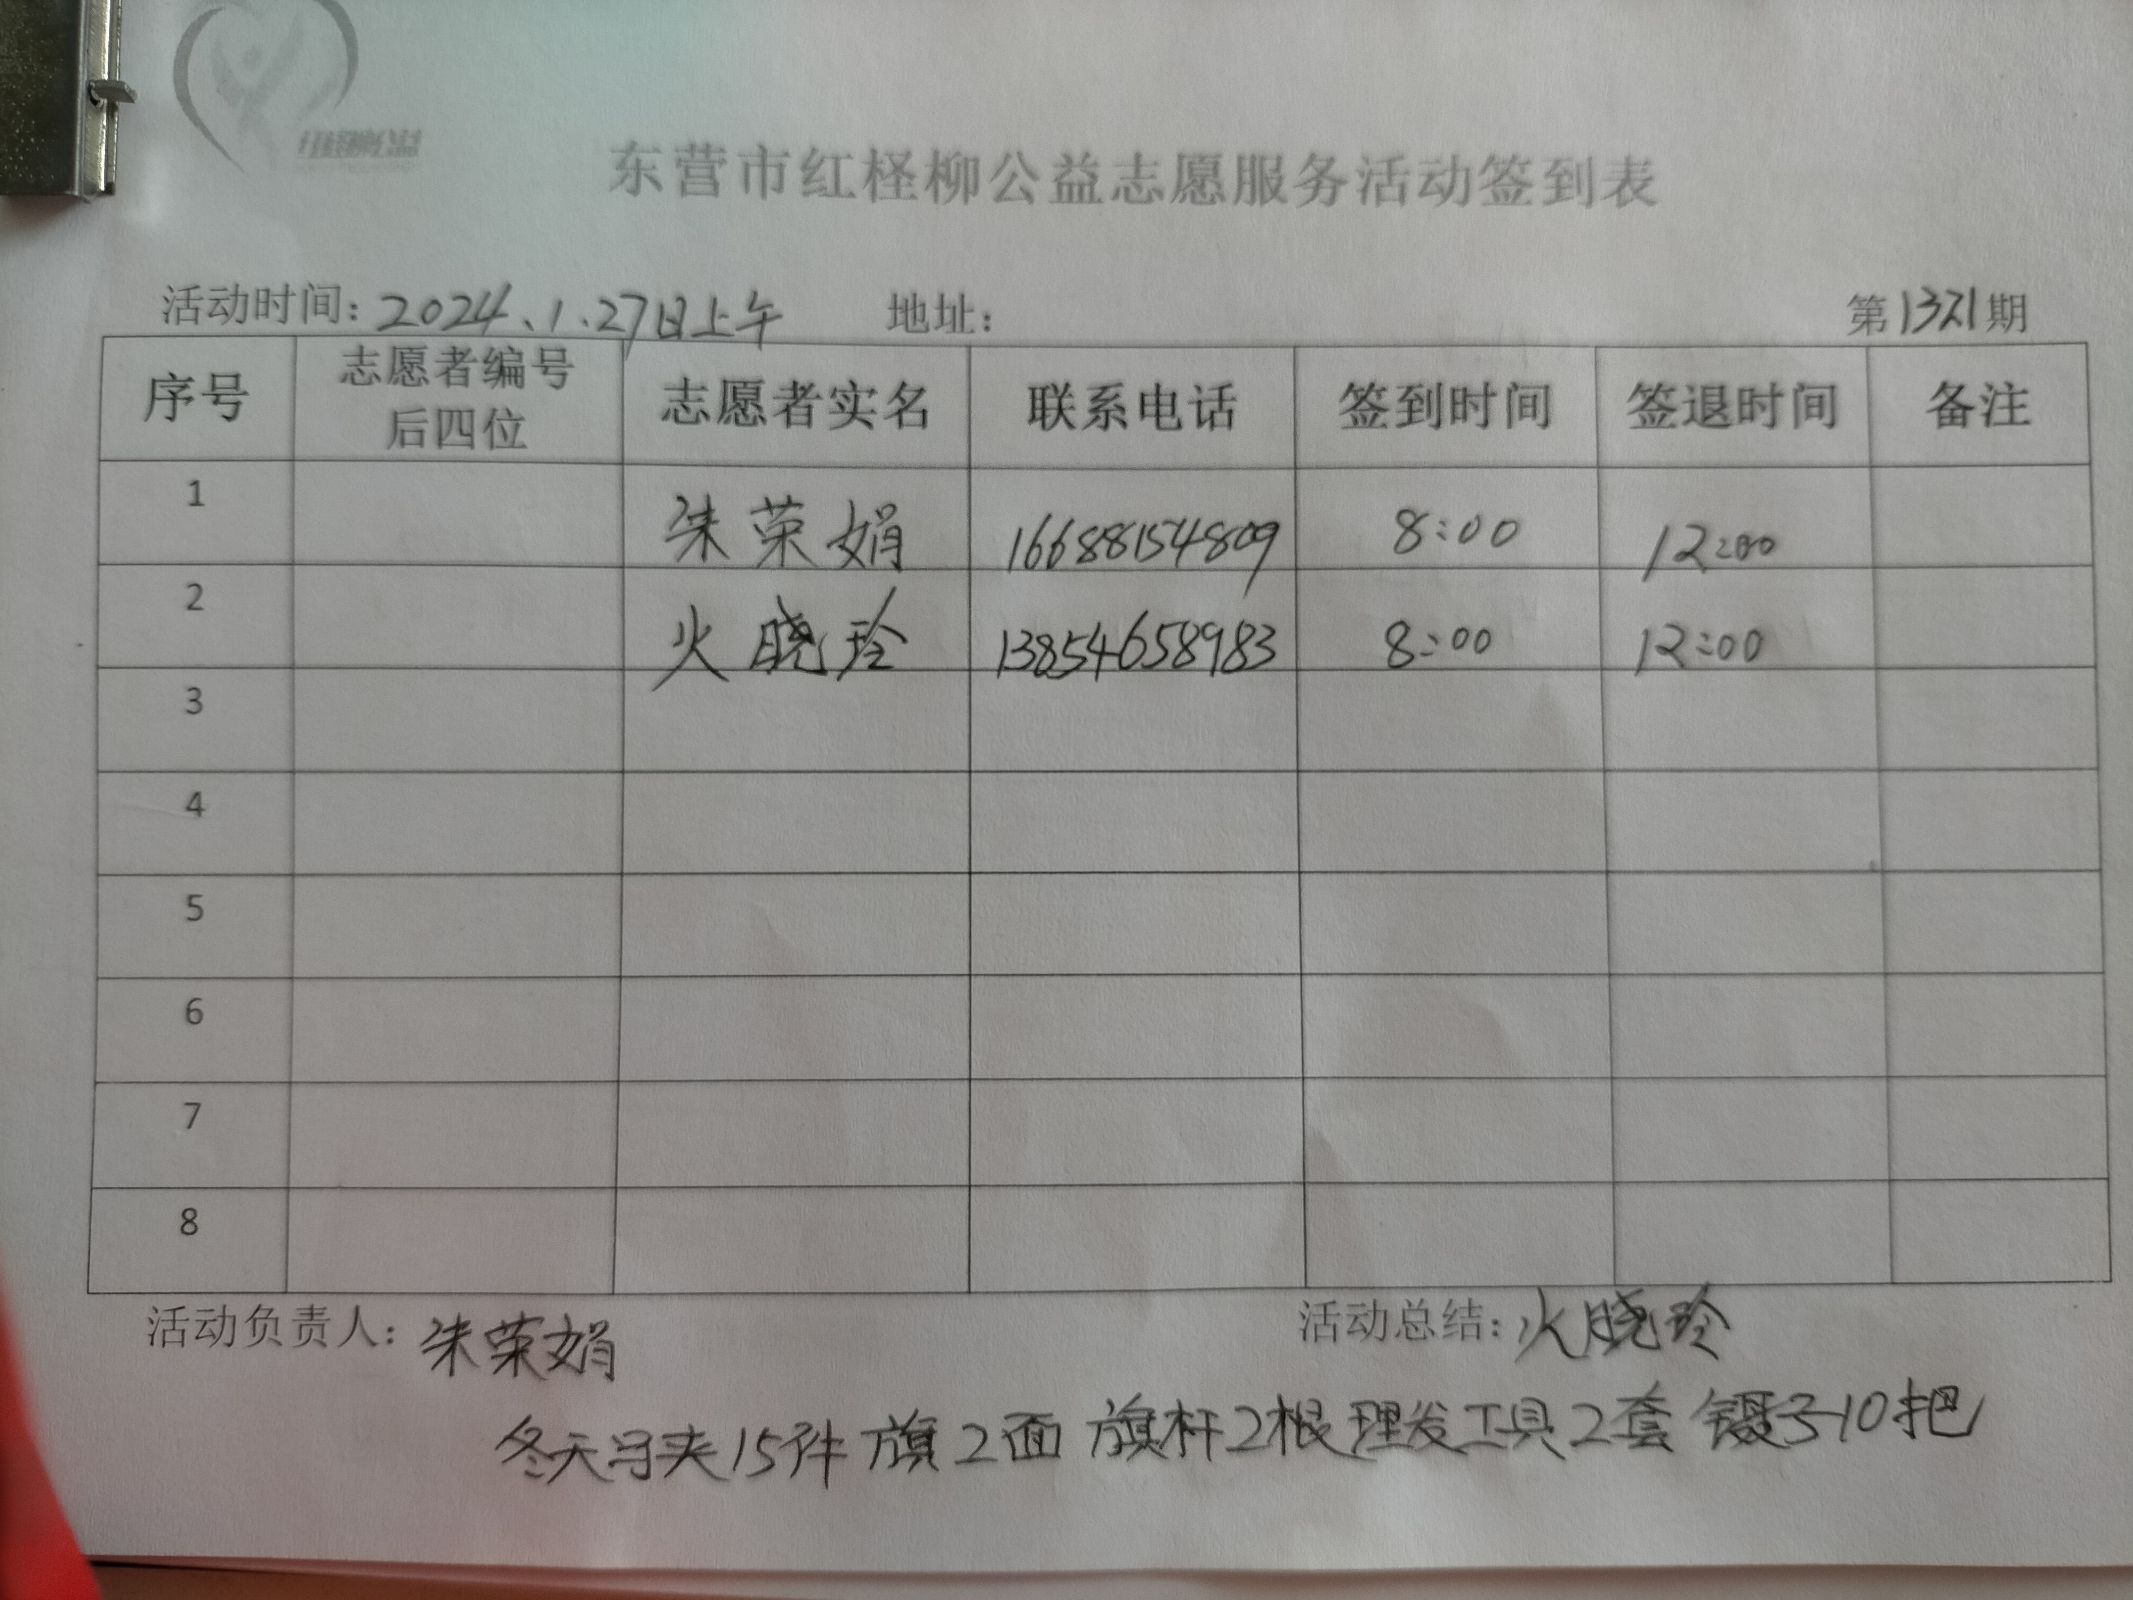 红柽柳公益
东营市红柽柳公益志愿服务活动签到表
活动时间：2024、1.27日上午 地址： 第1321期
序号 志愿者编号后四位 志愿者实名 联系电话 签到时间 签退时间 备注
1 朱荣娟 16688154809 8:00 12:00
2 火晓玲 13854658983 8:00 12:00
3
4
5
6
7
8
活动负责人：朱荣娟 活动总结：火晓玲
冬天马夹15件 旗2面 旗杆2根 理发工具2套 镊子10把